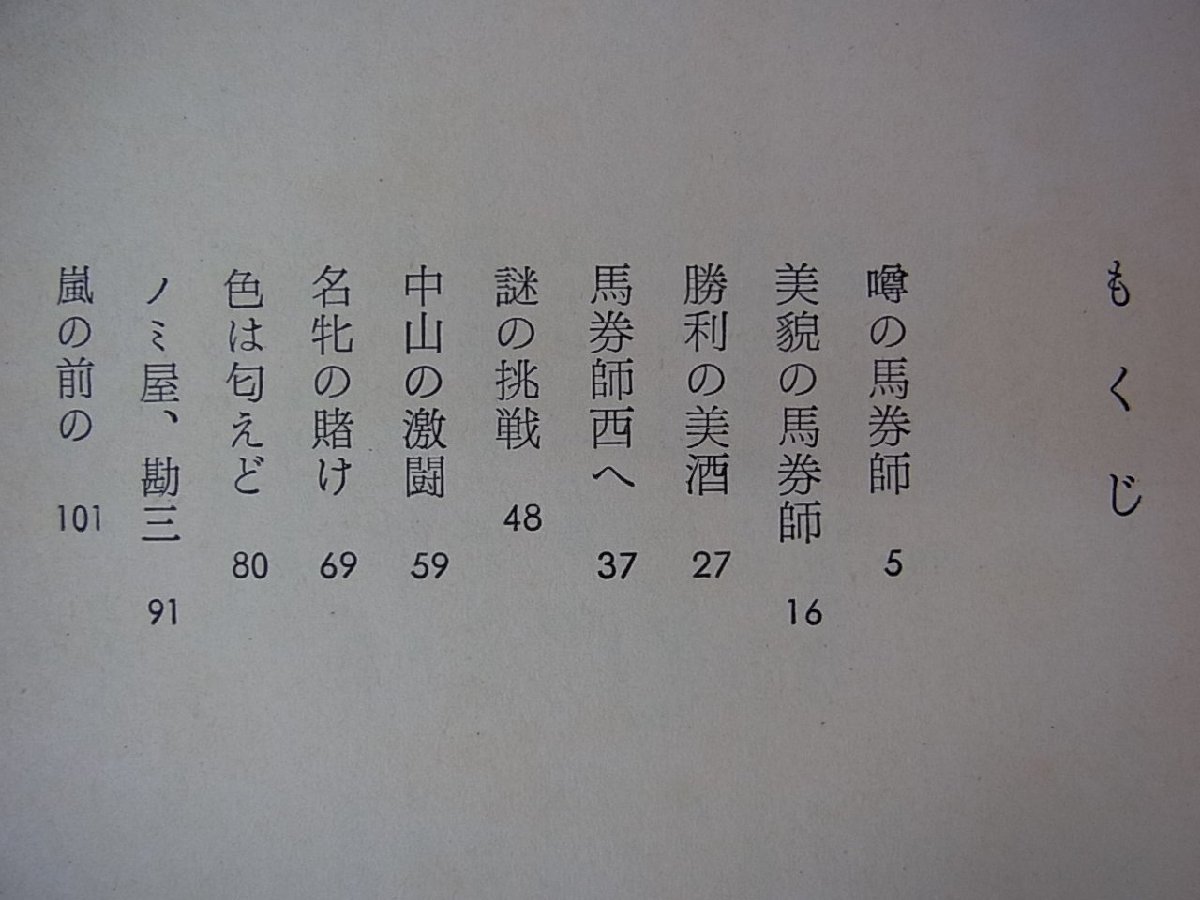 もくじ
噂の馬券師 5
美貌の馬券師 16
勝利の美酒 27
馬券師西へ 37
謎の挑戦 48
中山の激闘 59
名牝の賭け 69
色は匂えど 80
ノミ屋、勘三 91
嵐の前の 101